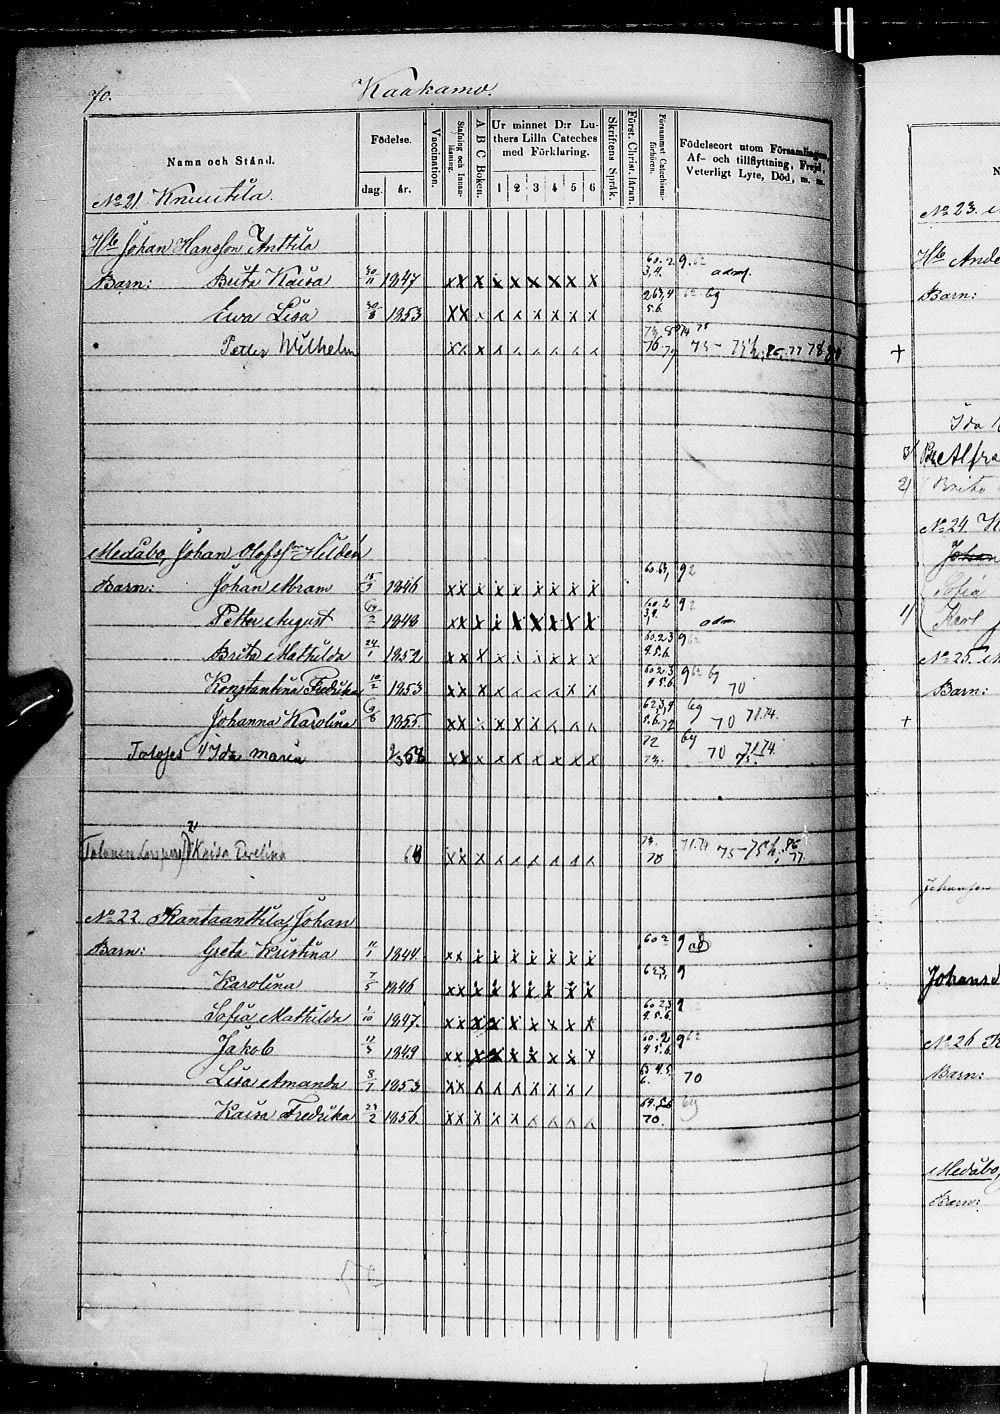 70. Kaakamo.
Namn och Stånd. Födelse. dag. år. Vaccination. Stafning och Innan-läsning. A B C Boken. Ur minnet D:r Luthers Lilla Cateches med Förklaring. 1 2 3 4 5 6 Skriftens Språk. Först. Christ. läran. Försummat Catechismi-förhören. Födelseort utom Församlingen, Af- och tillflyttning, Frejd, Veterligt Lyte, Död, m. m.
No 21. Knuutila.
Hb Johan Hansson Anttila
Barn: Brita Kaisa 30/11 1847 x x x x x x x x x 60.2 3,4. 9 62 adm.
Ewa Lisa 30/8 1853 x x x x x x x x x 2 63,4 5.6. 62 69
Petter Wilhelm x x x x x x x x x 76 77 75 – 75 h; 86. 77 78
Medåbo, Johan Olofsson Heldén
Barn: Johan Abram 18/9 1846 x x x x x x x x x 60.63, 92
Petter August 19/2 1848 x x x x x x x x x 60.2 3,4. 92 adm.
Brita Mathilda 24/1 1852 x x x x x x x x x 60.2.3 4.5.6. 9 62
Konstantina Fredrika 10/2 1853 x x x x x x x x x 60.2.3 4.5.6. 9 62 69 70
Johanna Karolina 19/6 1855. x x x x x x x x x 62.3,4 5.6,72 69 70 71.74.
1) Ida Maria 9/3 68 x x x x x x x x x 72 73. 69 70 71.74 75.
2) Kaisa Evelina 68 x x x x x x x x x 73. 78 71.74 75 – 75 h; 86 77
No 22. Rantaanttila, Johan
Barn: Greta Kristina 11/1 1844. x x x x x x x x x 60 2 9 ad
Karolina 7/5 1846 x x x x x x x x x 62.3, 9
Sofia Mathilda 1/10 1847. x x x x x x x x x 60.2.3 4.5.6. 9
Jakob 11/3 1849 x x x x x x x x x 60.2 4.5.6. 9 62
Lisa Amanda 8/7 1853 x x x x x x x x x 63 4.5 6. 70
Kaisa Fredrika 23/2 1856. x x x x x x x x x 64.5.6 70. 69
No 23.
Hb Ande
Barn:
+
Ida
3) Alfra
2) Brita
No 24.
Johan
Sofia
1) Karl
No 25.
Barn:
+
Johansson
Johans
No 26
Barn:
Medåbo,
Barn: